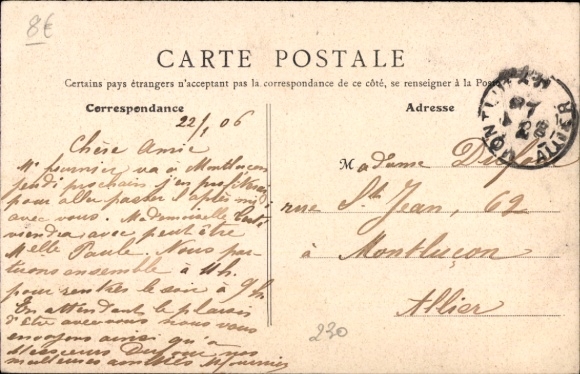 8€
CARTE POSTALE
Certains pays étrangers n'acceptant pas la correspondance de ce côté, se renseigner à la Poste
Correspondance
Adresse
22/1 06
Chère Amie
Mr Fournier va à Montluçon
jeudi prochain j'en profiterai
pour aller passer l'après midi
avec vous. Mademoiselle
viendra avec peut être
Melle Paule. Nous par-
tirons ensemble à 11h.
pour rentrer le soir à 9h
En attendant le plaisir
d'être avec vous nous vous
envoyons ainsi qu'à
Messieurs nos
meilleures amitiés MFournier
Madame
rue St Jean, 62
à Montluçon
Allier
MONTLUÇON
ALLIER
230